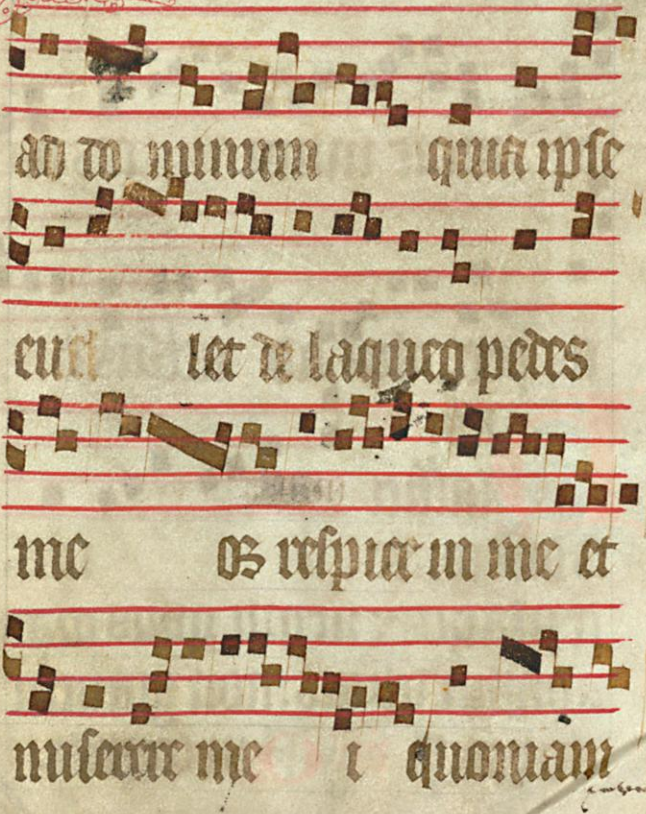 ad do minum quia ipse
euel let de laqueo pedes
me os respice in me et
miserere me i quoniam